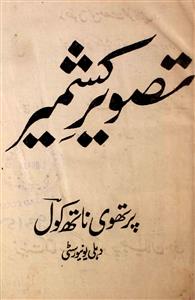 تصویر کشمیر
پرتھوی ناتھ کول
دہلی یونیورسٹی